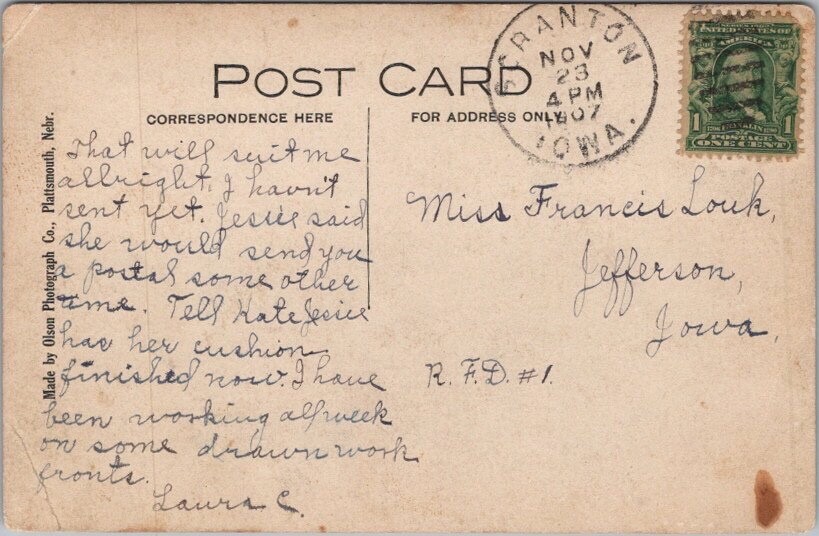 POST CARD
CORRESPONDENCE HERE
FOR ADDRESS ONLY
SCRANTON
NOV
23
4 PM
1907
IOWA.
UNITED STATES OF
AMERICA
1 1
POSTAGE
ONE CENT
Made by Olson Photograph Co., Plattsmouth, Nebr.
That will suit me
allright, I havn't
sent yet. Jessie said
she would send you
a postal some other
time. Tell Kate Jessie
has her cushion
finished now. I have
been working all week
on some drawn work
fronts.
Laura C.
Miss Francis Louk,
Jefferson,
Iowa.
R.F.D. #1.